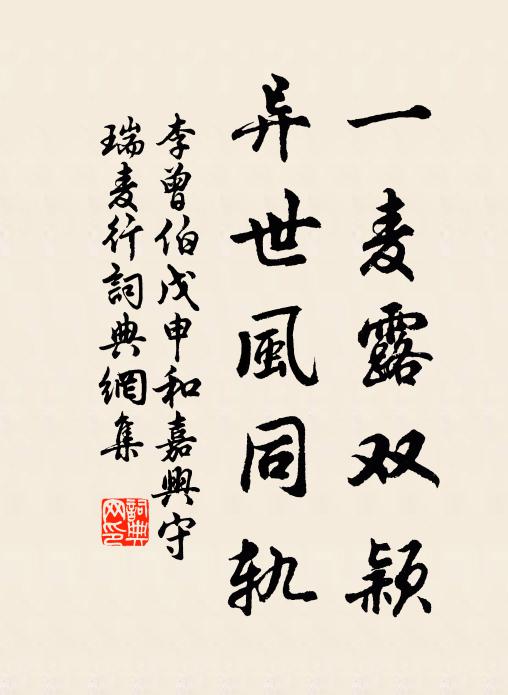 一麦露双颖
异世風同轨
李曾伯戊申和嘉興守
瑞麦行詞典網集
詞典网印